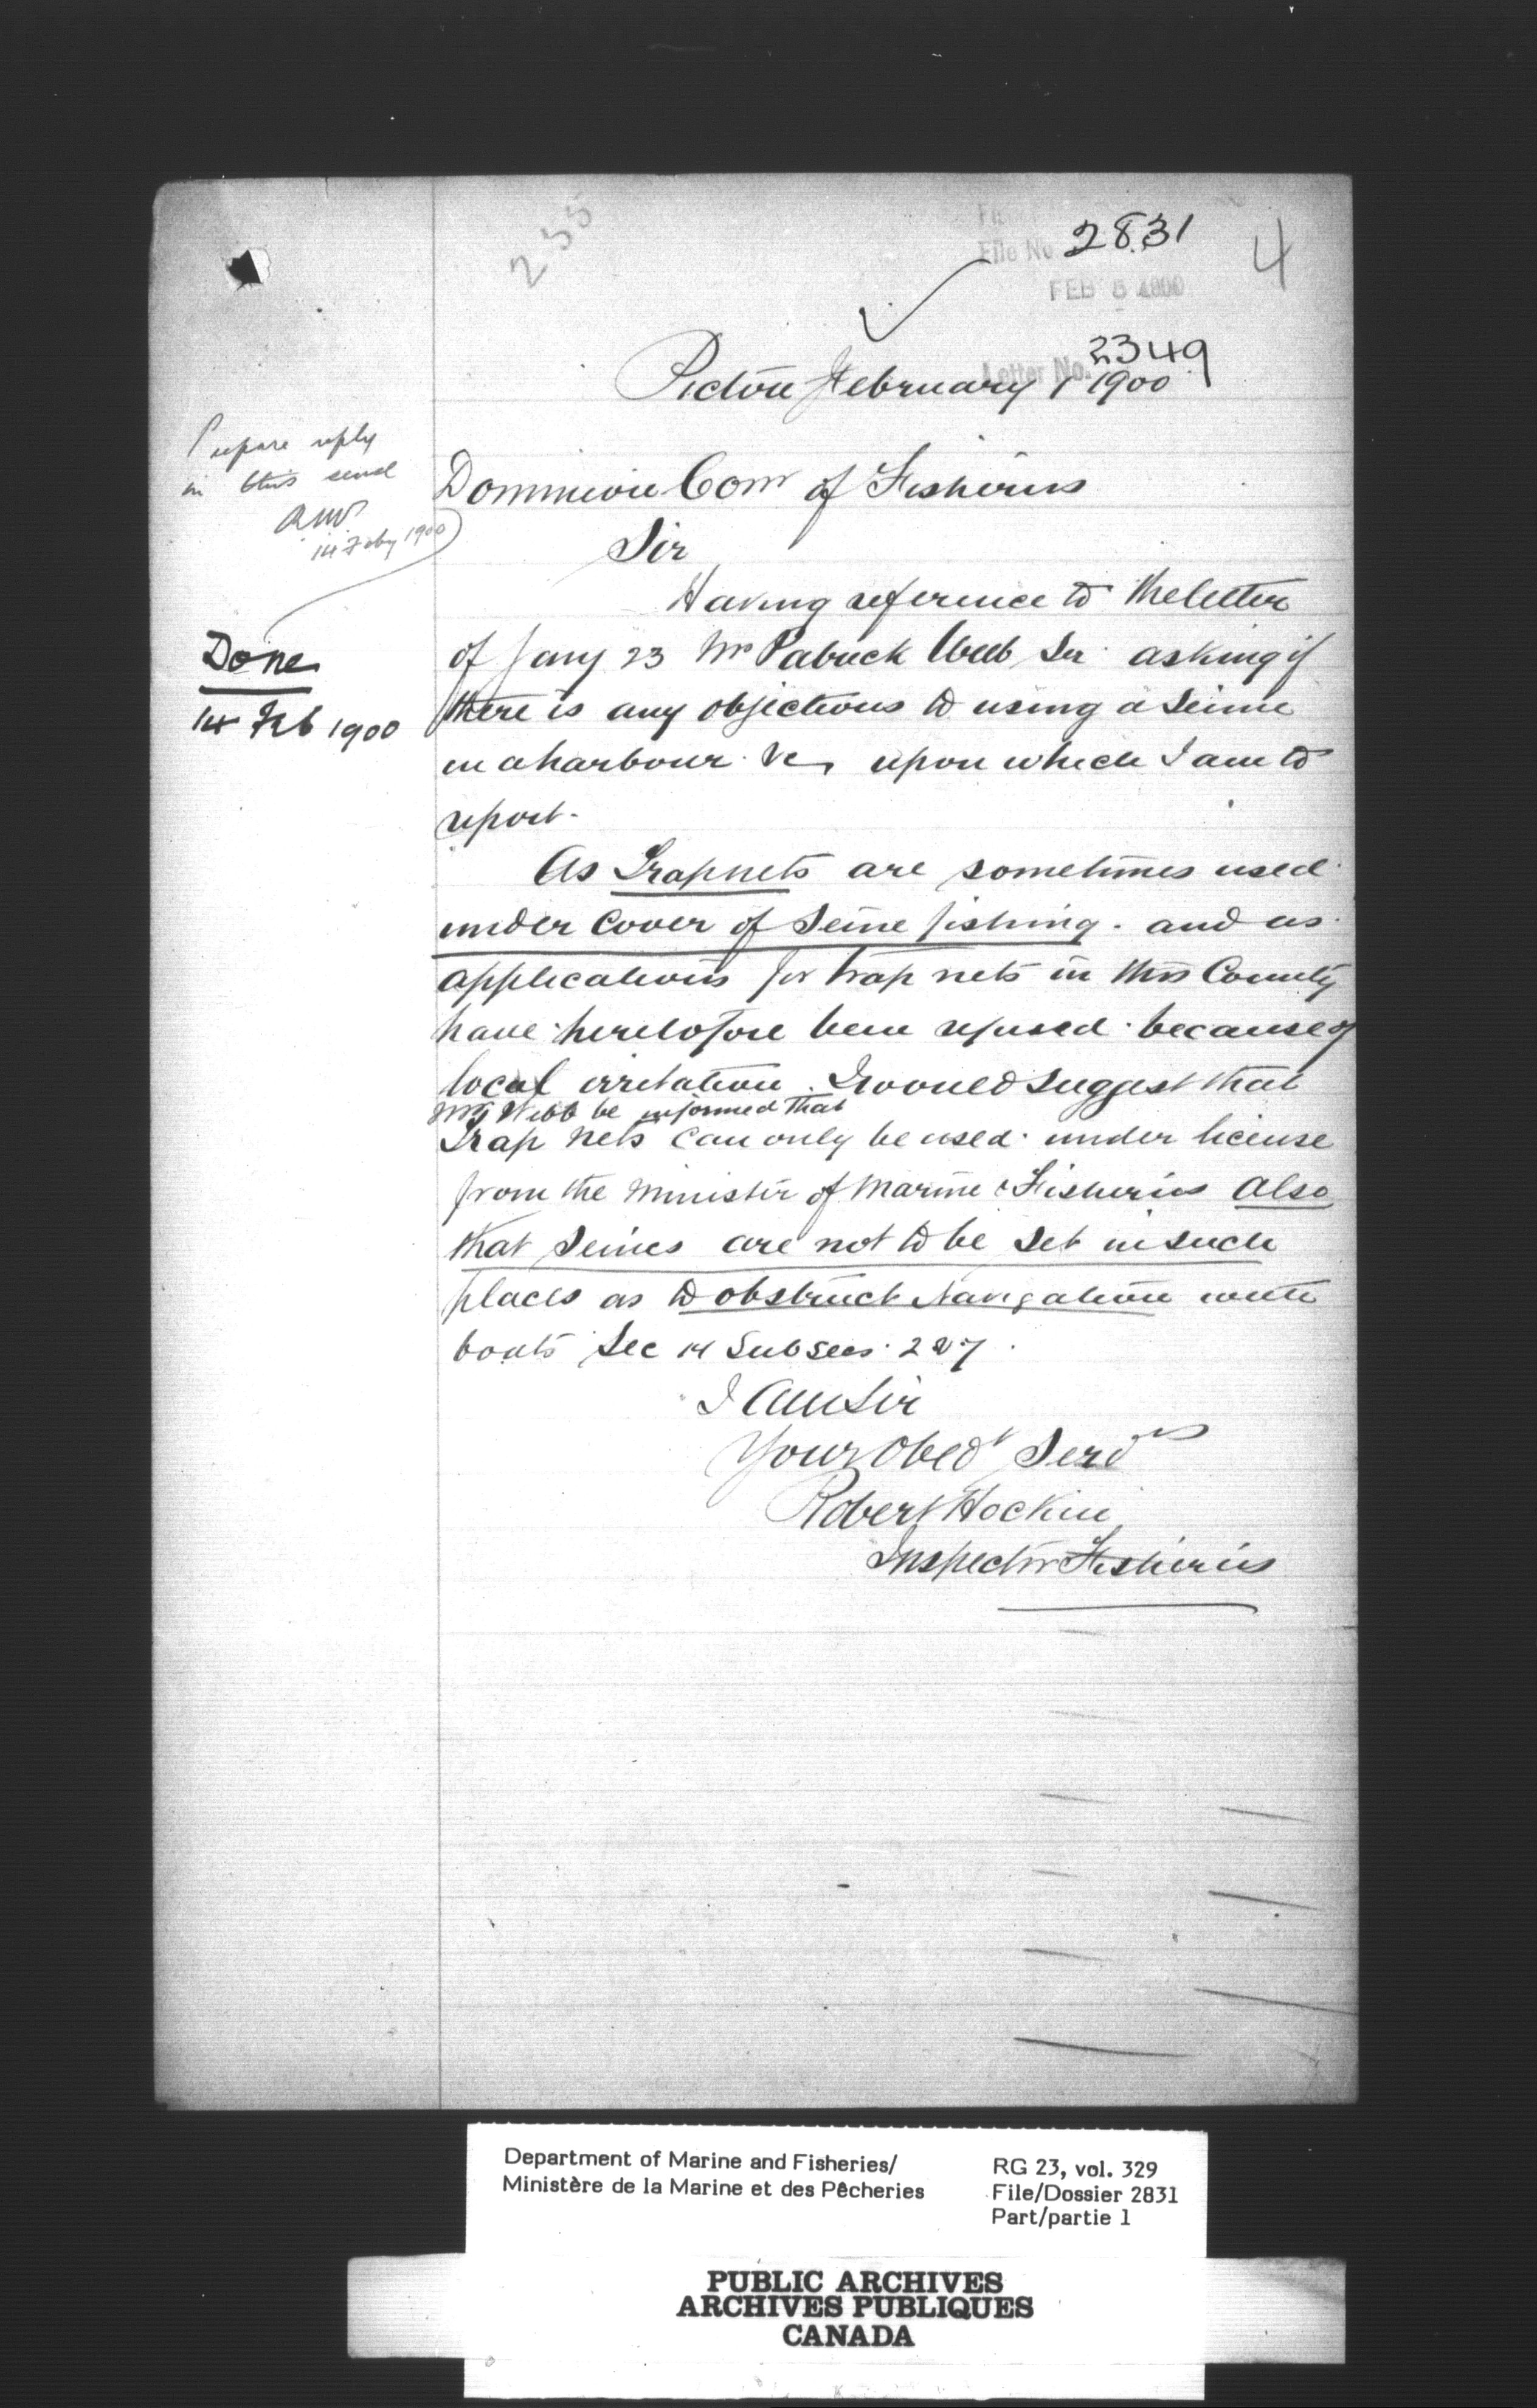 255
File No 2831
4
FEB 5 1900
Letter No. 2349
Pictou February 1 1900
Prepare reply
in this sense
14 Feby 1900
Done
14 Feb 1900
Dominion Comr of Fisheries
Sir
Having reference to the letter
of Jany 23 Mr Patrick Webb Sr asking if
there is any objections to using a Seine
in a harbour &c, upon which I am to
report.
As Trapnets are sometimes used
under cover of Seine fishing. and as
applications for trap nets in this County
have heretofore been refused because of
local irritation. I would suggest that
Mr Webb be informed that
Trap nets can only be used under license
from the Minister of Marine & Fisheries also
that Seines are not to be set in such
places as to obstruct Navigation with
boats Sec 14 Subsecs. 2 & 7.
I am Sir
Your Obedt Servt
Robert Hockin
Inspector Fisheries
Department of Marine and Fisheries/
Ministère de la Marine et des Pêcheries
RG 23, vol. 329
File/Dossier 2831
Part/partie 1
PUBLIC ARCHIVES
ARCHIVES PUBLIQUES
CANADA